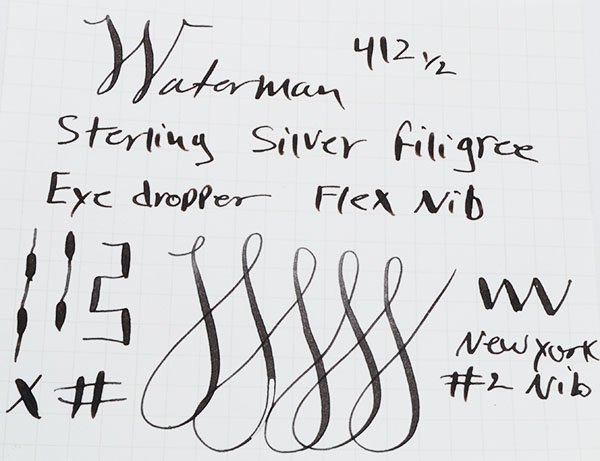 Waterman 412 1/2
Sterling Silver filigree
Eye dropper Flex Nib
New York
X # #2 Nib